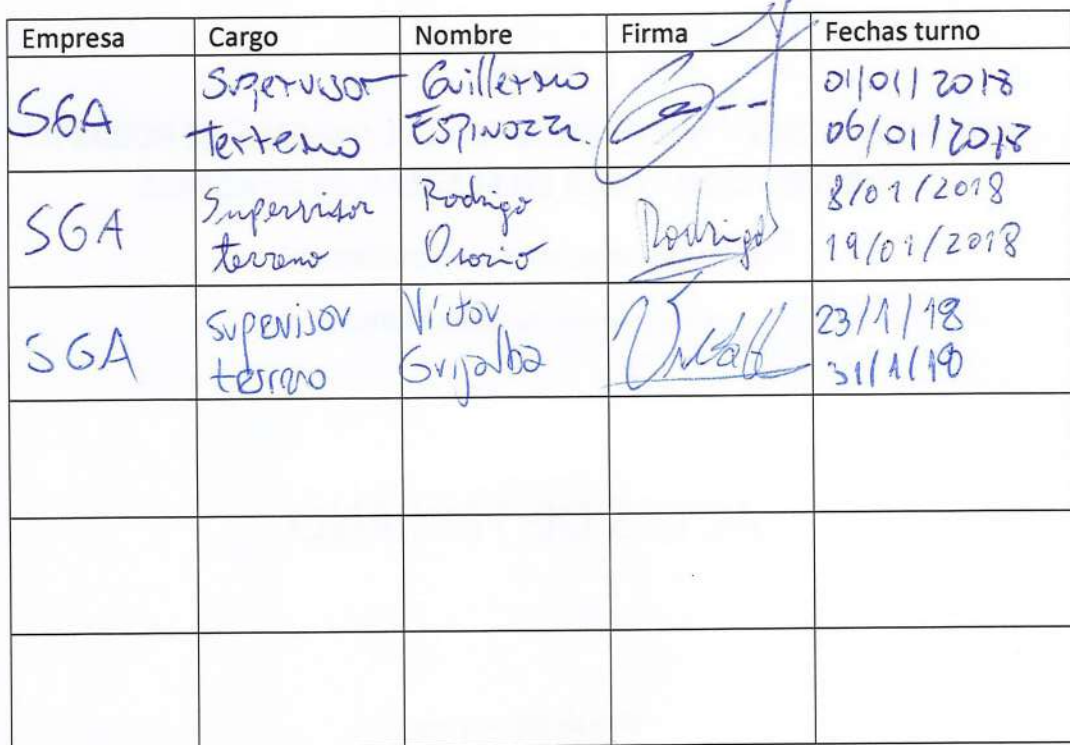 Empresa Cargo Nombre Firma Fechas turno
SGA Supervisor terreno Guillermo Espinoza 01/01/2018 06/01/2018
SGA Supervisor terreno Rodrigo Osorio Rodrigo 8/01/2018 19/01/2018
SGA Supervisor terreno Víctor Grijalba 23/1/18 31/1/18